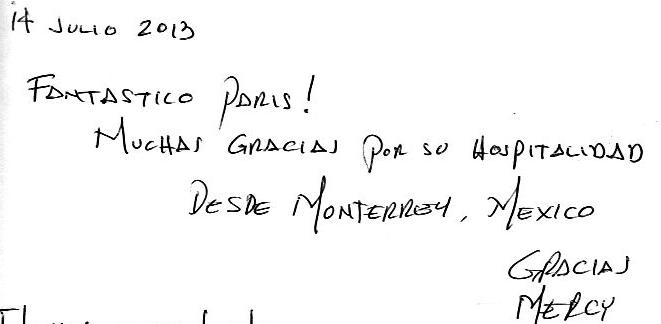 14 JULIO 2013
FANTASTICO PARIS!
MUCHAS GRACIAS POR SU HOSPITALIDAD
DESDE MONTERREY, MEXICO
GRACIAS
MERCY